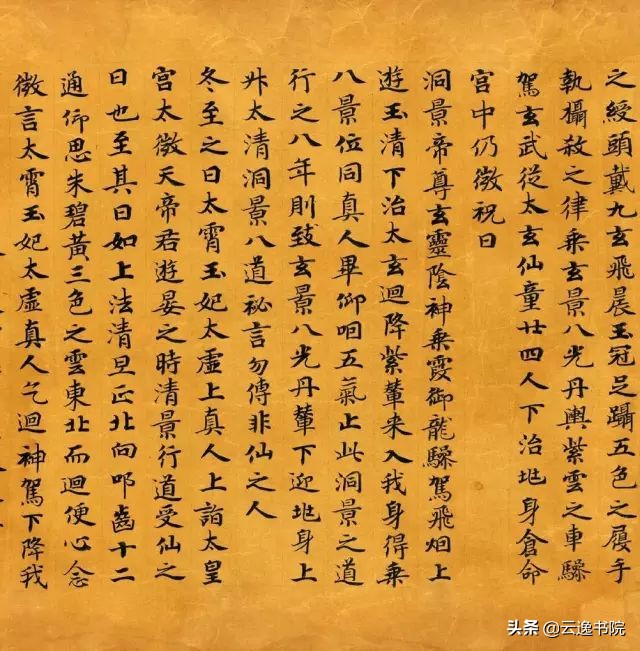 之綬頭戴九玄飛晨玉冠足躡五色之履手
執攝殺之律乗玄景八光丹輿紫雲之車驂
駕玄武從太玄仙童廿四人下治地身倉命
宮中仍微祝曰
洞景帝尊玄靈陰神乗霞御龍驂駕飛烟上
遊玉清下治太玄迴降紫輦来入我身得乗
八景位同真人畢仰咽五氣止此洞景之道
行之八年則致玄景八光丹輦下迎地身上
升太清洞景八道祕言勿傳非仙之人
冬至之日太霄玉妃太虛上真人上詣太皇
宮太微天帝君遊晏之時清景行道受仙之
日也至其日如上法清旦正北向叩齒十二
通仰思朱碧黃三色之雲東北而迴便心念
微言太霄玉妃太虛真人乞迴神駕下降我
头条 @云逸书院